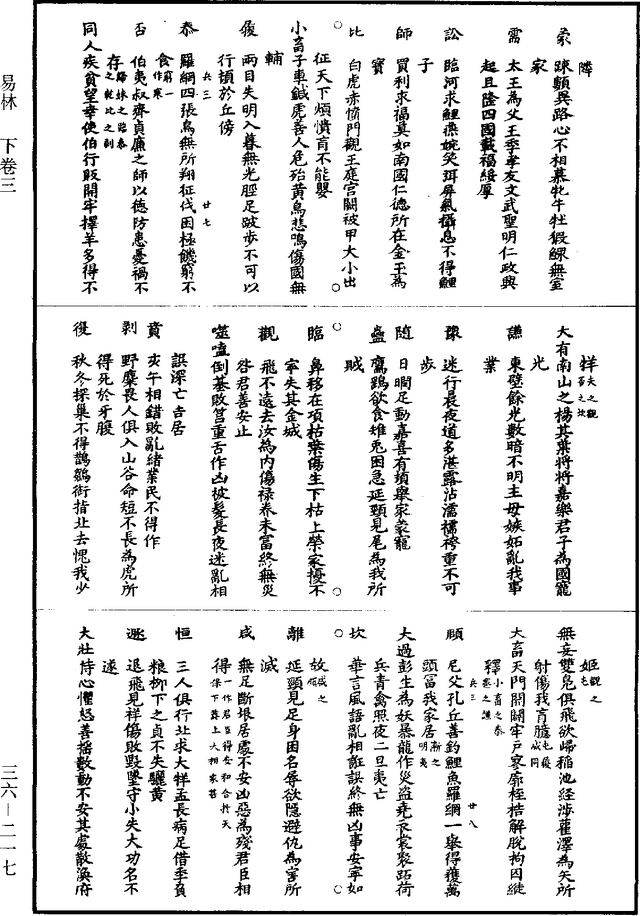 易林　下卷三
三六－二一七
隣
蒙　踈類異路心不相慕牝牛牡猳鰥無室
家
需　太王為父王季孝友文武聖明仁政興
起旦隆四國載福綏厚
訟　臨河求鯉燕婉笑弭屏氣攝息不得鯉
子
師　買利求福莫如南國仁德所在金玉為
寶
比　白虎赤憤鬥觀王庭宮闕被甲大小出
征天下煩憒育不能嬰
小畜子車鍼虎善人危殆黄鳥悲鳴傷國無
輔
履　兩目失明入暮無光脛足跛步不可以
行頓於丘傍
兵三　廿七
泰　羅網四張鳥無所翔征伐困極饑窮不
食窮一作寒
否　伯夷叔齊貞廉之師以德防患憂禍不
存
同人疾貧望幸使伯行販開牢擇羊多得不
祥
大有南山之楊其葉將將嘉樂君子為國寵
光
謙　東壁餘光數暗不明主母嫉妬亂我事
業
豫　迷行晨夜道多湛露沾濡襦袴重不可
步
隨　日闇足動嘉喜有頃舉家蒙寵
蠱　鷹鷂欲食雉兎困急延頸見尾為我所
賊
臨　鼻移在項枯葉傷生下枯上榮家擾不
寧失其金城
觀　飛不遠去汝為內傷祿養未富終無災
咎君善安止
噬嗑倒基敗宫重舌作凶被髮長夜迷亂相
誤深亡吉居
賁　亥午相錯敗亂緒業民不得作
剥　野麋畏人俱入山谷命短不長為虎所
得死於牙腹
復　秋冬探巢不得鵲鶵銜指北去愧我少
姬
无妄雙鳬俱飛欲歸稻池經涉雚澤為矢所
射傷我胷臆
大畜天門開闢牢户寥廓桎梏解脫拘囚縱
釋
兵三　廿八
頤　尼父孔丘善釣鯉魚羅網一舉得獲萬
頭富我家居
大過彭生為妖暴龍作災盜堯衣裳聚跖荷
兵青禽照夜三旦夷亡
坎　華言風語亂相誑誤終無凶事安寧如
故
離　延頸見足身困名辱欲隱避仇為害所
滅
咸　無足斷垠居處不安凶惡為殘君臣相
得
恒　三人俱行北求大牂孟長病足倩季負
糧柳下之貞不失驪黄
遯　退飛見祥傷敗毀墜守小失大功名不
遂
大壯恃心懼怒善摇數動不安其處散渙府